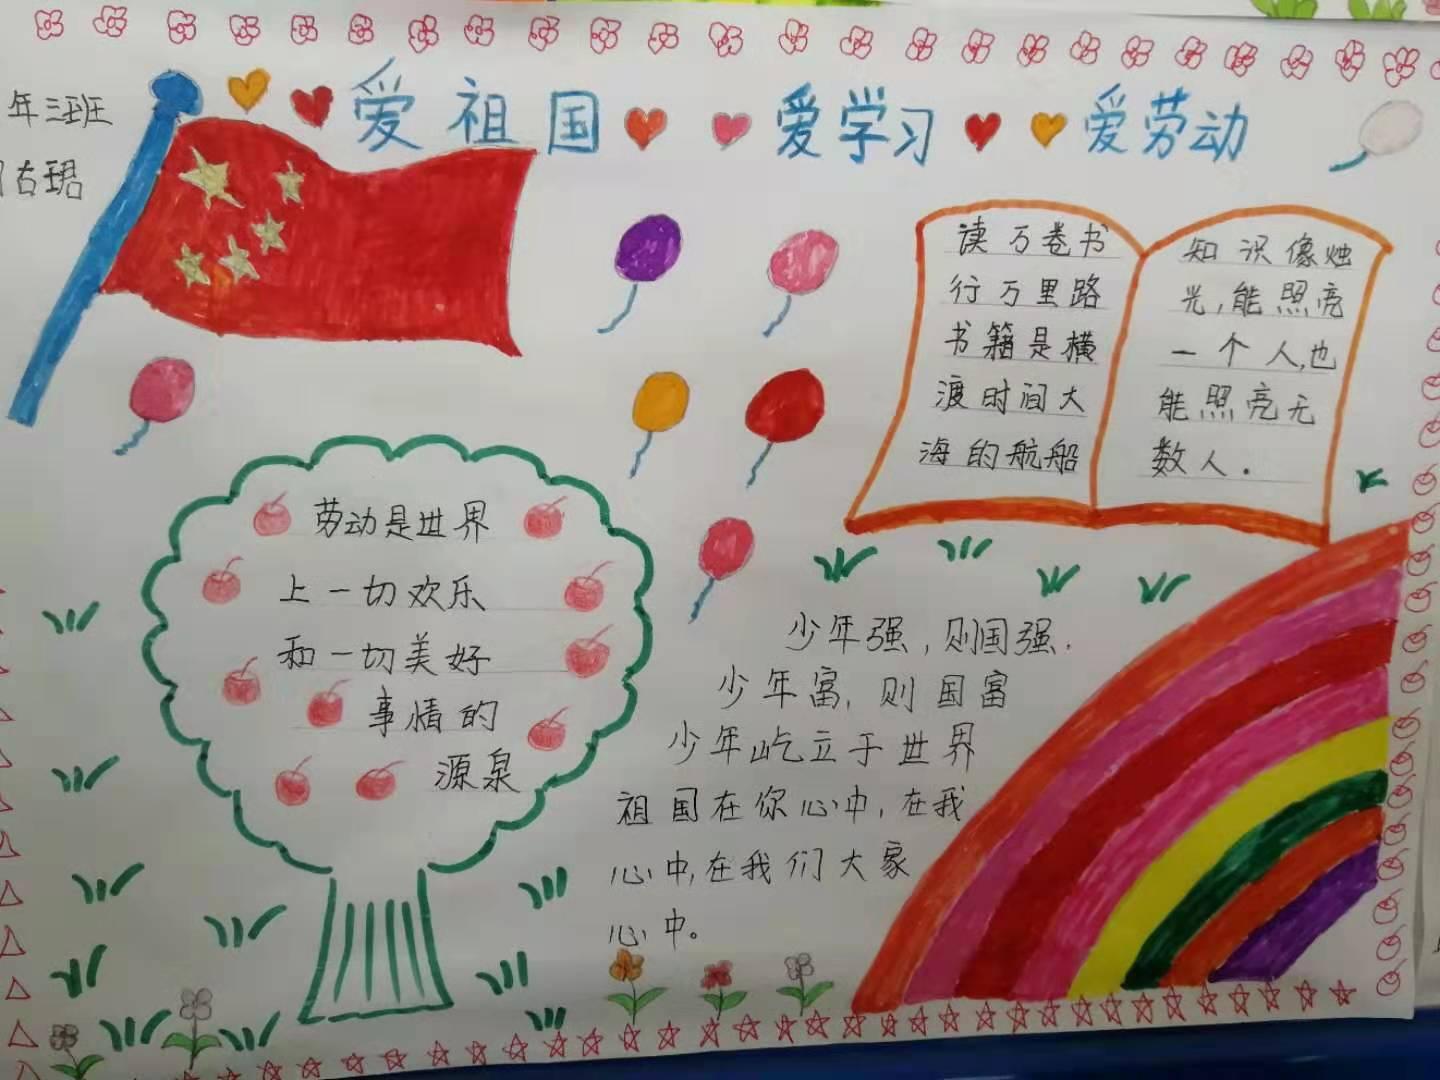 年三班
古珺
爱祖国 爱学习 爱劳动
读万卷书
行万里路
书籍是横
渡时间大
海的航船
知识像烛
光,能照亮
一个人,也
能照亮无
数人.
劳动是世界
上一切欢乐
和一切美好
事情的
源泉
少年强,则国强.
少年富,则国富
少年屹立于世界
祖国在你心中,在我
心中,在我们大家
心中。